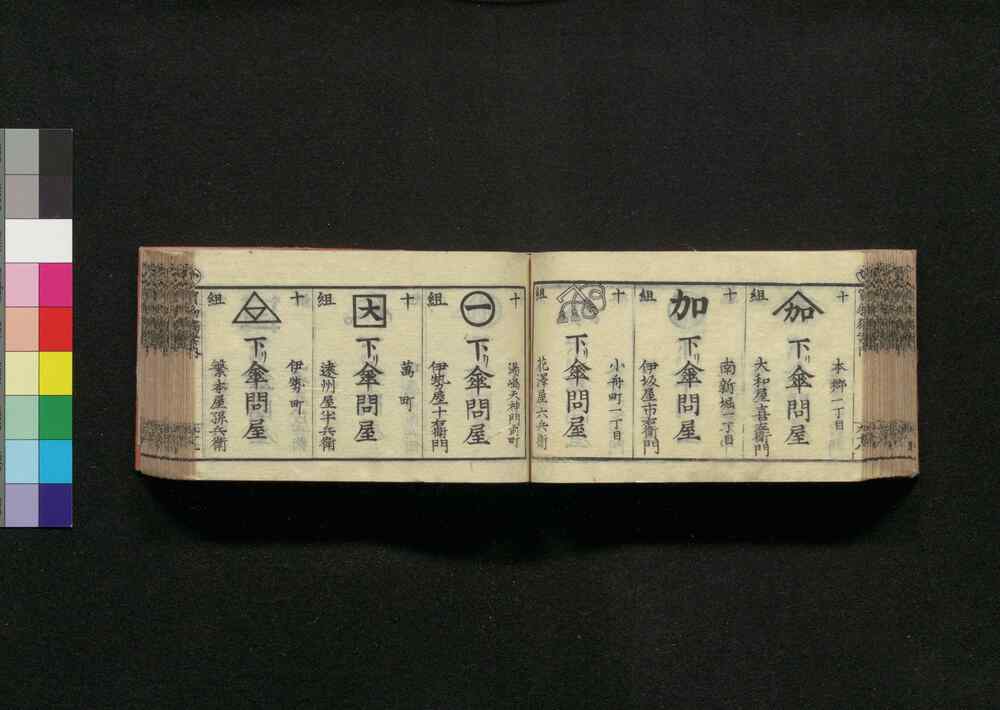 十組
加
本郷一丁目
下リ傘問屋
大和屋喜兵衛
十組
加
南新堀一丁目
下リ傘問屋
伊坂屋市右衛門
十組
小舟町一丁目
下リ傘問屋
花澤屋六兵衛
十組
一
湯嶋天神門前町
下リ傘問屋
伊勢屋十右衛門
十組
大
萬町
下リ傘問屋
遠州屋半兵衛
十組
伊勢町
下リ傘問屋
屋孫兵衛